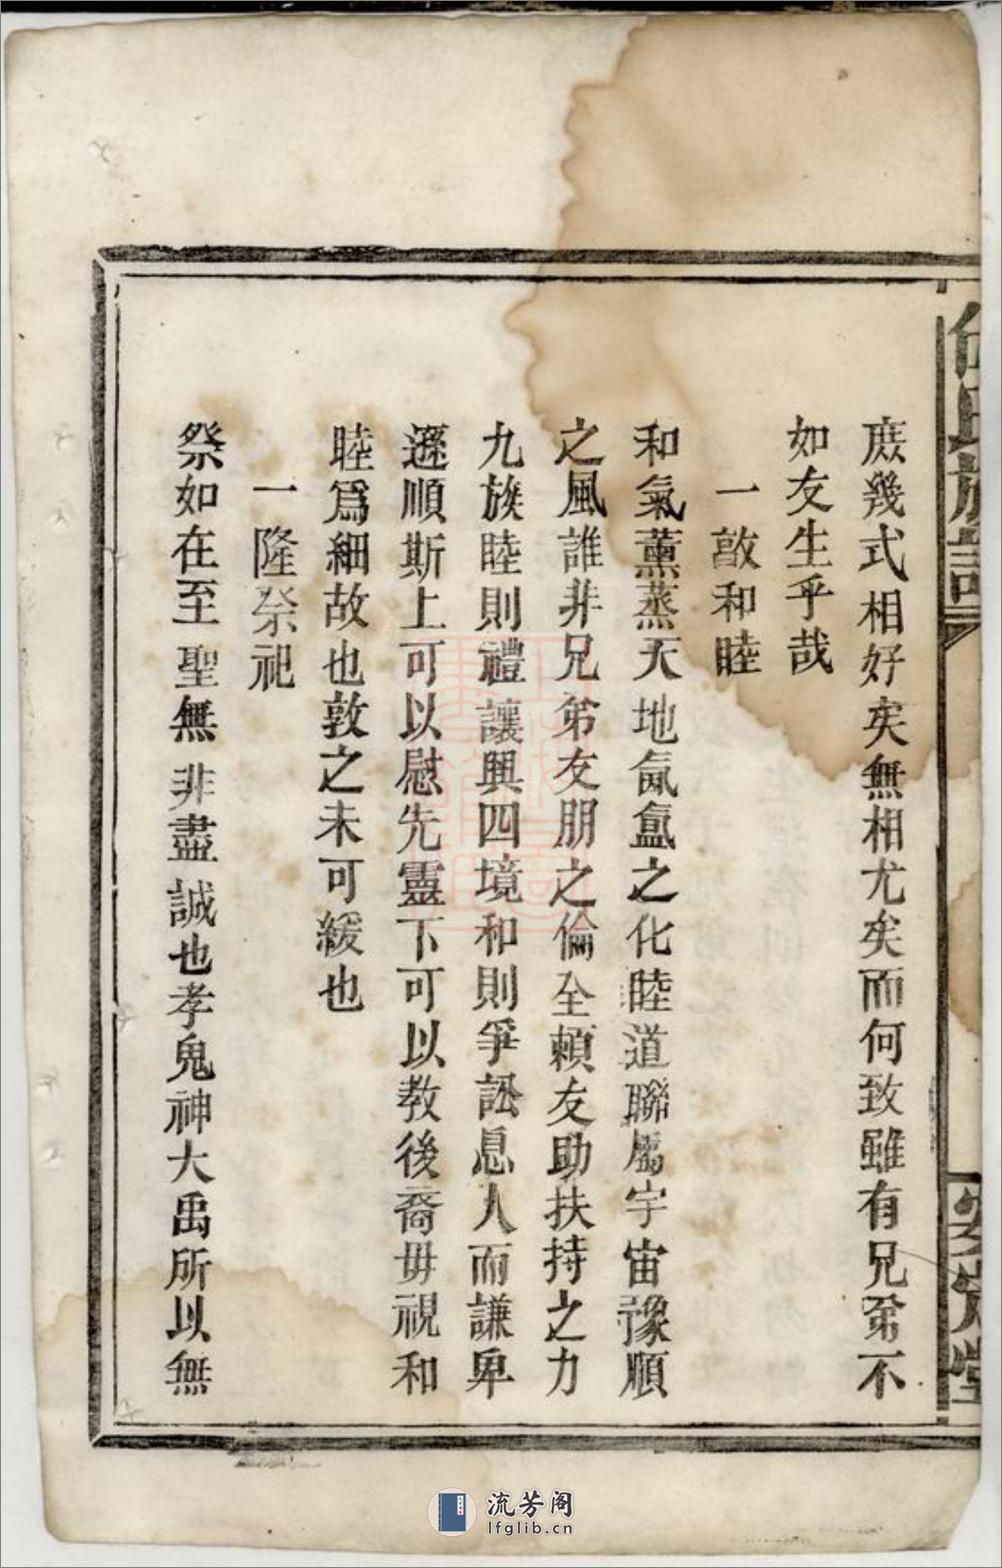 庶幾式相好矣無相尤矣而何致雖有兄弟不
如友生乎哉
一敦和睦
和氣薰蒸天地氤氳之化睦道聯屬宇宙豫順
之風誰非兄弟友朋之倫全賴友助扶持之力
九族睦則禮讓興四境和則爭訟息人而謙卑
遜順斯上可以慰先靈下可以教後裔毋視和
睦爲細故也敦之未可緩也
一隆祭祀
祭如在至聖無非盡誠也孝鬼神大禹所以無
氏族譜
堂
流芳阁
lfglib.cn